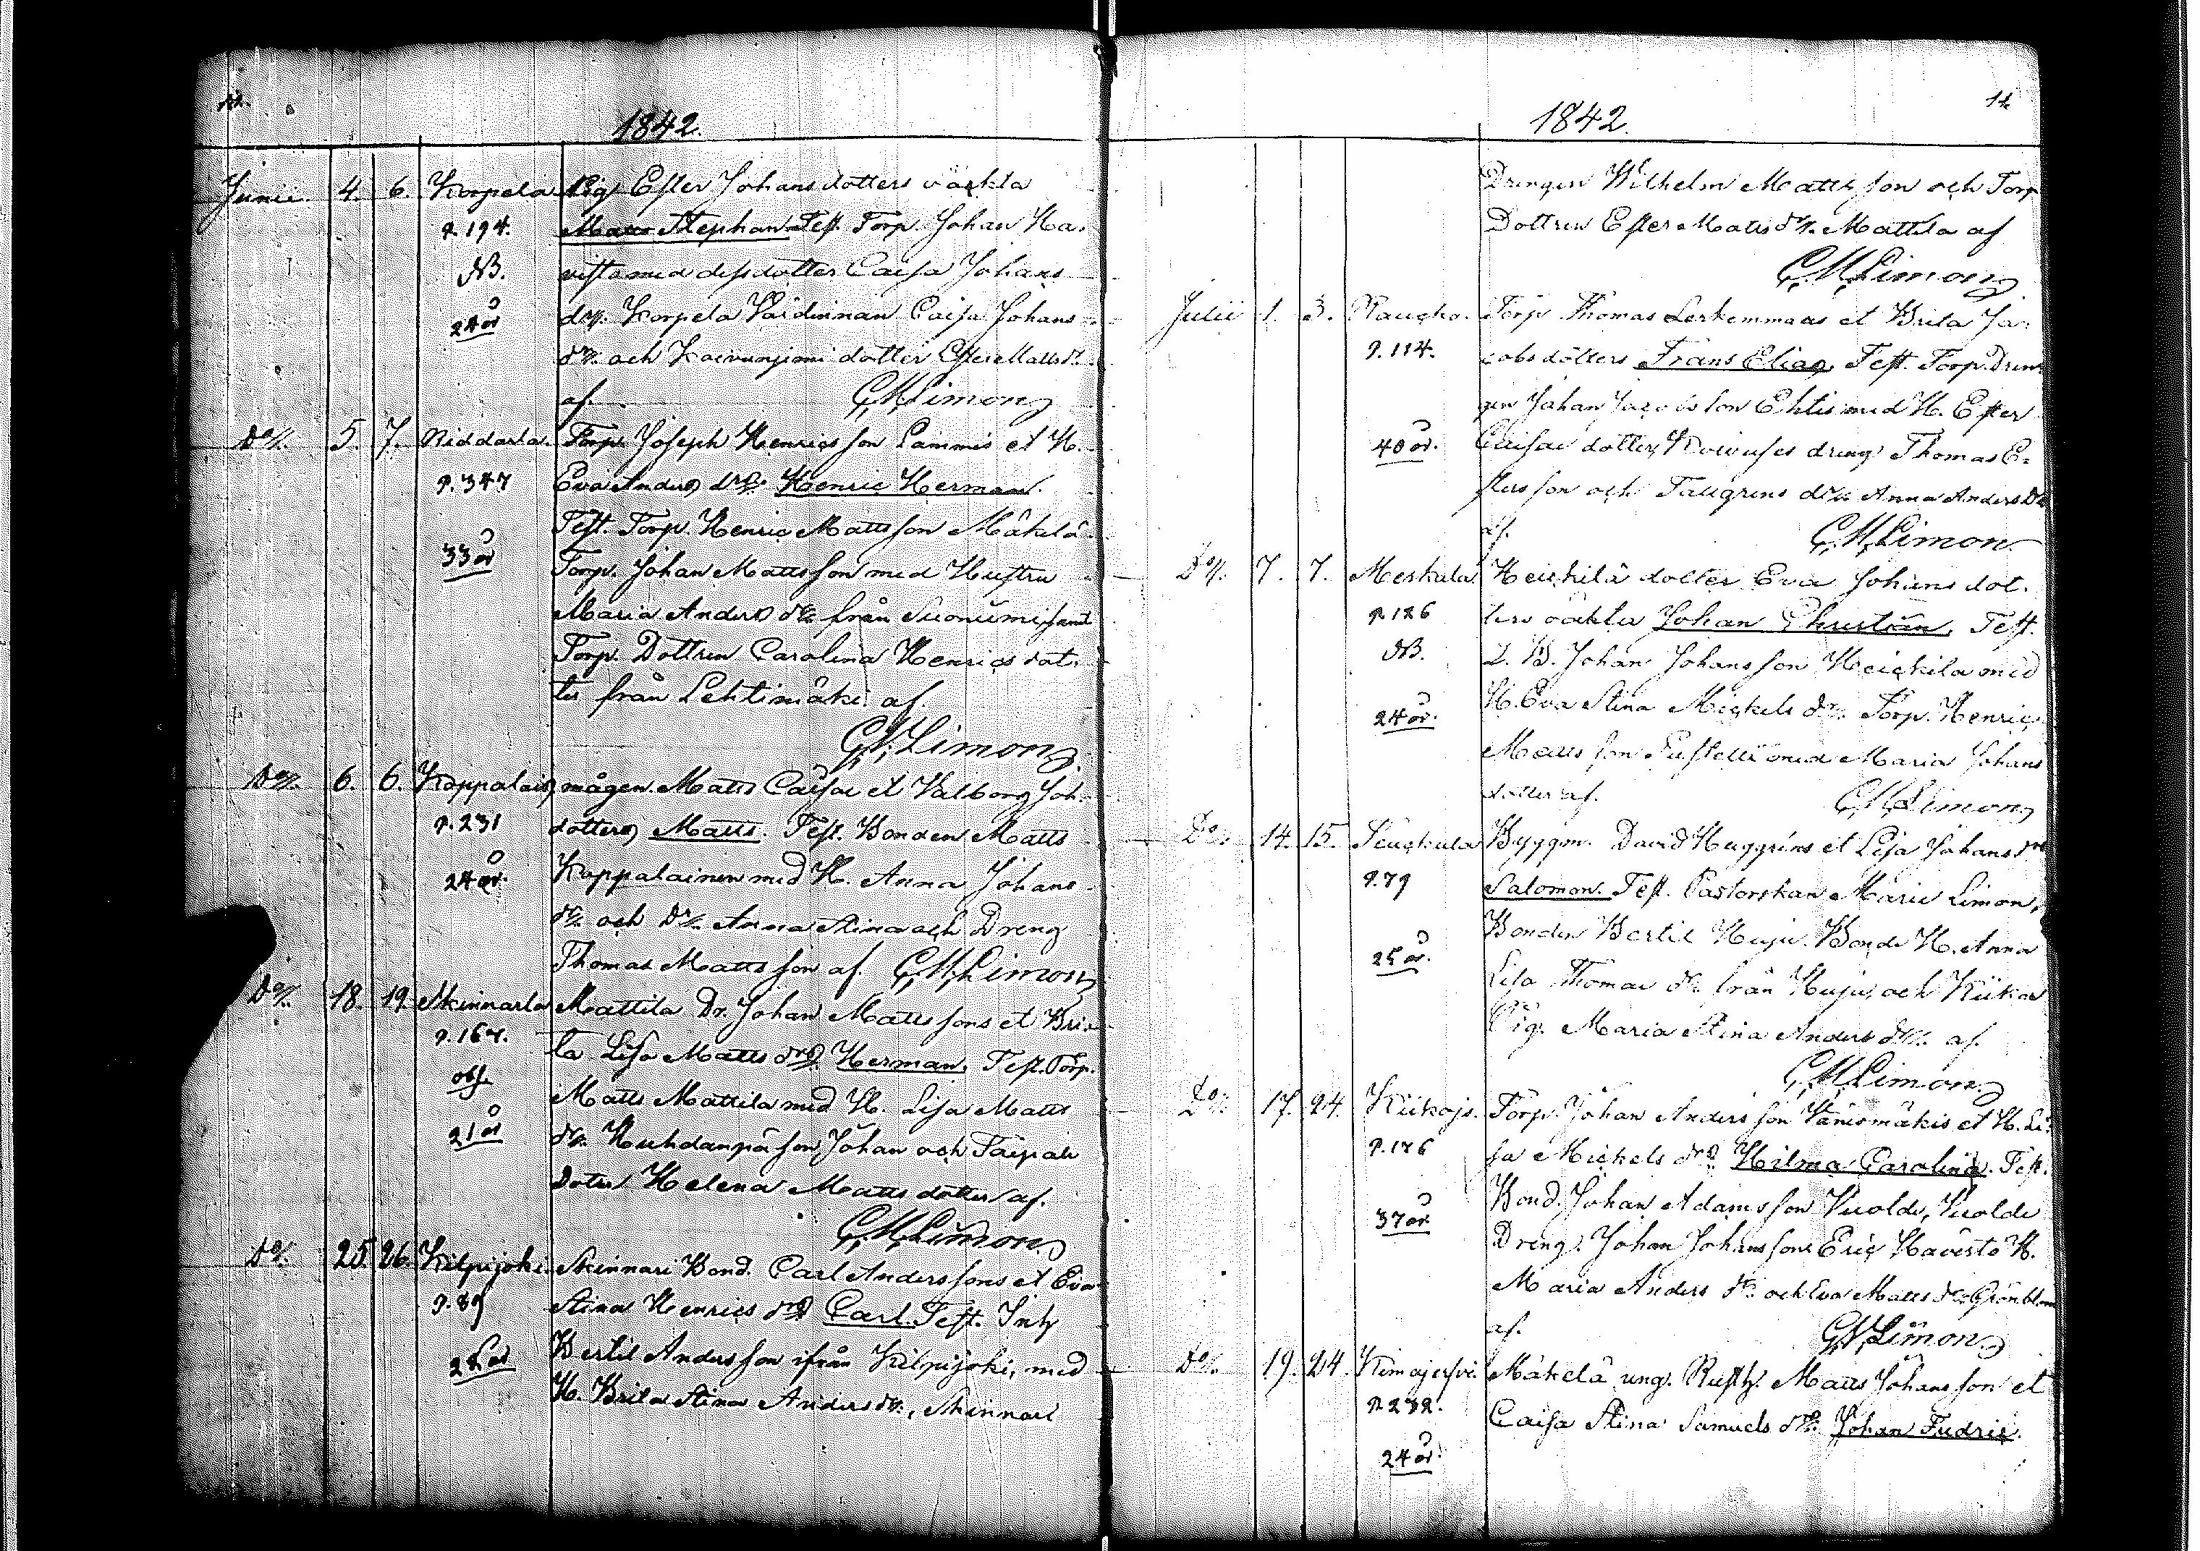 1842.
Junii 4. 6. Korpela Pig. Ester Johans dotters oäkta
p. 194. Matts Stephan. Test. Torp. Johan Ha-
NB. visto med dess dotter Caisa Johans
24 år drr. Korpela Värdinnan Caisa Johans
drr. och Koivunjemi dotter Ester Matts dr.
af. G. M. Limon
Do/. 5. 7. Riddarla. Torp. Joseph Henrics son Lammis et H.
p. 347 Eva Anders drs. Henric Herman.
Test. Torp. Henric Matts son Mäkelä
33 år Torp. Johan Matts son med Hustru
Maria Anders dr. från Suoniemi, samt
Torp. Dottren Carolina Henrics dot-
ter från Lehtimäki af.
G. M. Limon
Do/. 6. 6. Koppalais mågen Matts Caisac et Valborg Joh.
p. 231 dotters, Matts. Test. Bonden Matts
24 år. Koppalainen med H. Anna Johans
dr. och dr. Anna Stina och Dreng
Thomas Matts son af. G. M. Limon
Do/. 18. 19. Skinnarla Mattila Dr. Johan Matts sons et Bri-
p. 167. ta Lisa Matts drs. Herman. Test. Torp.
obs. Matts Mattila med H. Lisa Matts
21 år dr. Huhdanpä son Johan och Taipale
Doter Helena Matts dotter af.
G. M. Limon
Do/. 25. 26. Kilpijoki. Skinnari Bond. Carl Anders sons et Eva
p. 89 Stina Henrics drs. Carl. Test. Inh
Bertil Anders son ifrån Kilpijoki, med
H. Brita Stina Anders dr., Skinnari
1842.
Drengen Wilhelm Matts son och Torp
Dottren Ester Matts dr. Mattila af
G. M. Limon
Julii 1. 3. Torp. Thomas Lerkemmaas et Brita Ja-
p. 114. cobs dotters Frans Elias, Test. Torp. Dren-
gen Johan Jacobs son Ehtis med H. Ester
40 år. Caisac dotter, dreng Thomas E-
sters son och drr. Anna Anders dr.
af. G. M. Limon
Do/. 7. 7. Meskala Heickilä dotter Eva Johans dot-
p. 126 ters oäkta Johan Christian, Test.
NB. Johan Johans son Heickilä med
24 år. H. Eva Stina Mickels dr. Torp. Henric
Matts son med Maria Johans
dotter af. G. M. Limon
Do/. 14. 15. Byggm. David Huggrins et Lisa Johans drs.
p. 79 Salomon. Test. Pastorskan Marie Limon,
Bonden Bertil Huju. Bonde H. Anna
25 år. Lisa Thomae dr. från Huju, och
Pig. Maria Stina Anders dr. af.
G. M. Limon
Do/. 17. 24. Torp. Johan Anders son Vänismäkis et H. Li-
p. 176 sa Mickels drs. Hilma Carolina. Test.
Bond. Johan Adams son
37 år Dreng. Johan Johans son Eric Havisto H.
Maria Anders dr. och Eva Matts dr. Grönblom
af. G. M. Limon
Do/. 19. 24. Kimajerfvi. Mäkelä ung. Rusth. Matts Johans son et
p. 232. Caisa Stina Samuels drs. Johan Fredric.
24 år.